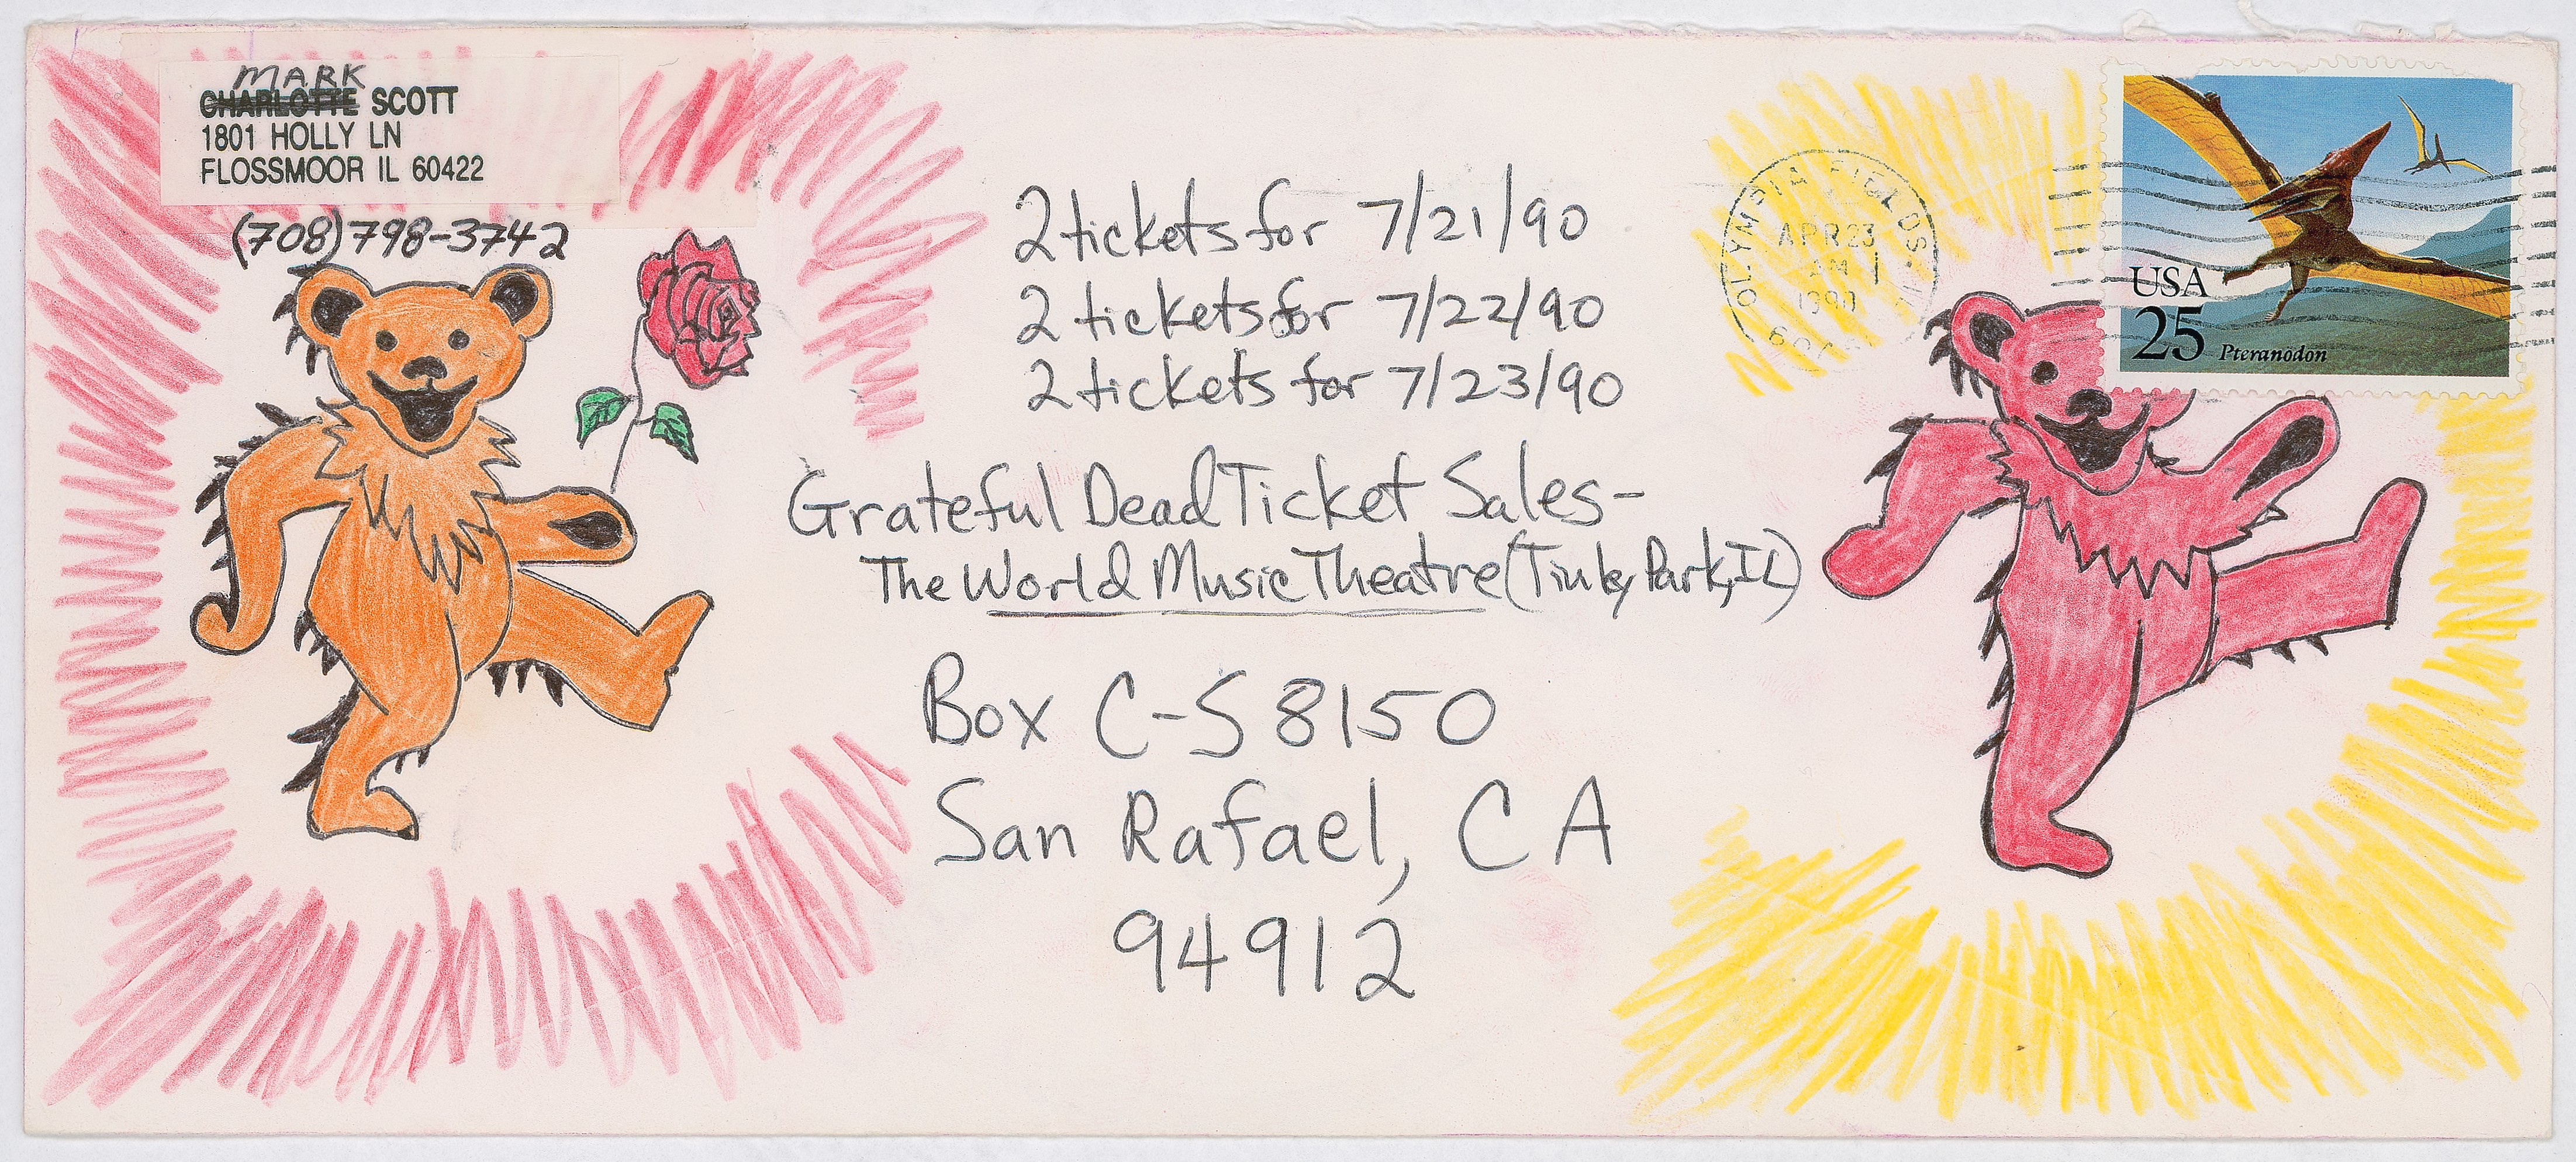 MARK
CHARLOTTE SCOTT
1801 HOLLY LN
FLOSSMOOR IL 60422
(708)798-3742
2 tickets for 7/21/90
2 tickets for 7/22/90
2 tickets for 7/23/90
Grateful Dead Ticket Sales-
The World Music Theatre (Tinley Park, IL)
Box C-S 8150
San Rafael, CA
94912
OLYMPIA FIELDS
APR 23
AM
1990
USA
25 Pteranodon